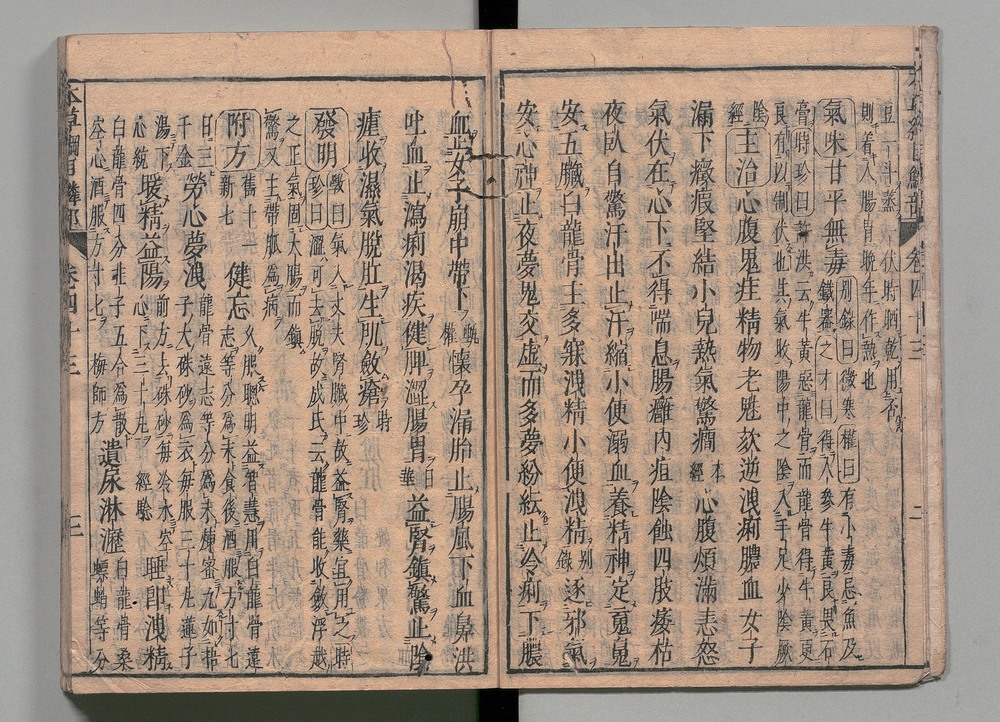 豆一斗蒸
則着人腸胃晚年作熱也
氣味甘平無毒別錄曰微寒權曰有小毒忌魚及
鐵器之才曰得人參牛黃良畏石
膏時珍曰許洪云牛黃惡龍骨而龍骨得牛黃更
良有以制伏也其氣收陽中之陰入手足少陰厥
陰經主治心腹鬼疰精物老魅欬逆洩痢膿血女子
漏下癥瘕堅結小兒熱氣驚癇本經心腹煩滿恚怒
氣伏在心下不得喘息腸癰內疽陰蝕四肢痿枯
夜臥自驚汗出止汗縮小便溺血養精神定魂魄
安五臟白龍骨主多寐洩精小便洩精別錄逐邪氣
安心神止夜夢鬼交虛而多夢紛紜止冷痢下膿
血女子崩中帶下甄權懷孕漏胎止腸風下血鼻洪
吐血止瀉痢渴疾健脾澀腸胃日華益腎鎮驚止陰
瘧收濕氣脫肛生肌斂瘡時珍
發明斅曰氣入丈夫腎臟中故益腎藥宜用之時
珍曰濇可去脫故成氏云龍骨能收斂浮越
之正氣固大腸而鎮
驚又主帶脈為病
附方舊十一新七健忘久服聰明益智慧用白龍骨遠
志等分為末食後酒服方寸七
日三千金勞心夢洩龍骨遠志等分為末煉蜜丸如梧
子大硃砂為衣每服三十丸蓮子
湯下心統暖精益陽前方去硃砂每冷水空
心下三十丸經驗睡即洩精
白龍骨四分韭子五合為散
空心酒服方寸七梅師方遺尿淋瀝白龍骨桑
螵蛸等分
本草綱目鱗部卷四十三
三
卷四十三
二